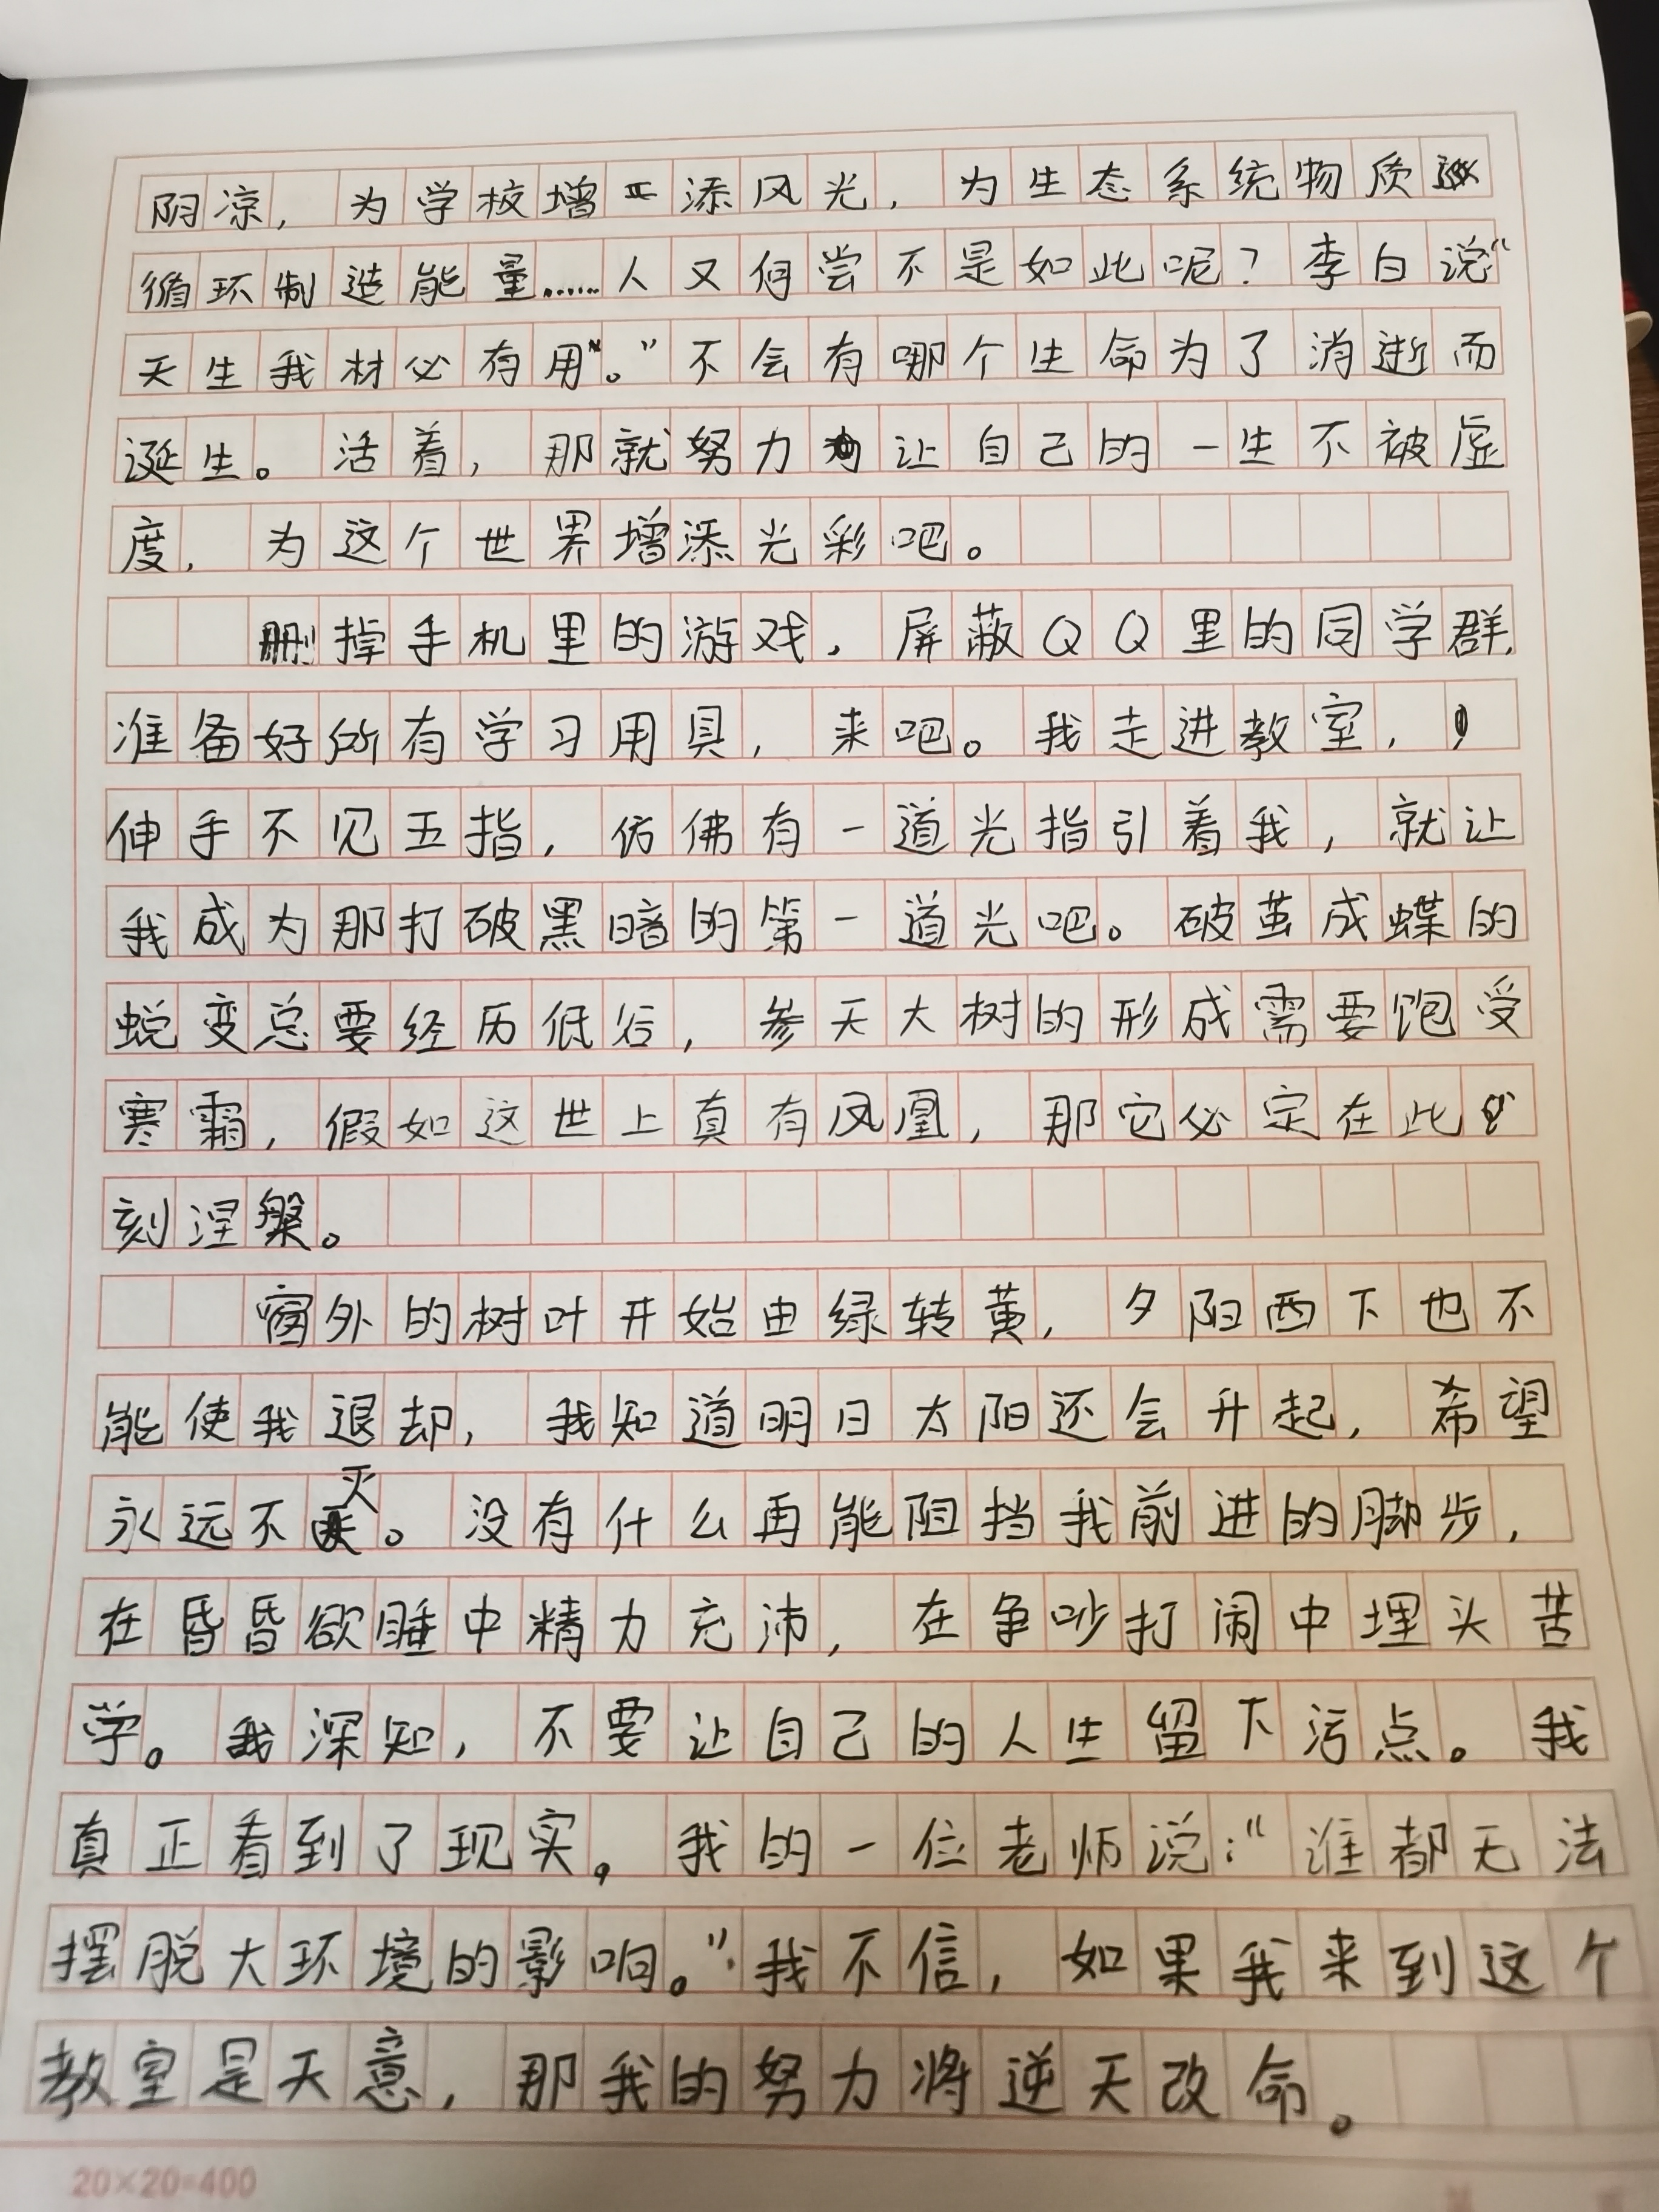 阴凉，为学校增添风光，为生态系统物质
循环制造能量……人又何尝不是如此呢？李白说“
天生我材必有用。”不会有哪个生命为了消逝而
诞生。活着，那就努力让自己的一生不被虚
度，为这个世界增添光彩吧。
删掉手机里的游戏，屏蔽QQ里的同学群，
准备好所有学习用具，来吧。我走进教室，
伸手不见五指，仿佛有一道光指引着我，就让
我成为那打破黑暗的第一道光吧。破茧成蝶的
蜕变总要经历低谷，参天大树的形成需要饱受
寒霜，假如这世上真有凤凰，那它必定在此
刻涅槃。
窗外的树叶开始由绿转黄，夕阳西下也不
能使我退却，我知道明日太阳还会升起，希望
永远不灭。没有什么再能阻挡我前进的脚步，
在昏昏欲睡中精力充沛，在争吵打闹中埋头苦
学。我深知，不要让自己的人生留下污点。我
真正看到了现实。我的一位老师说：“谁都无法
摆脱大环境的影响。”我不信，如果我来到这个
教室是天意，那我的努力将逆天改命。
20×20=400